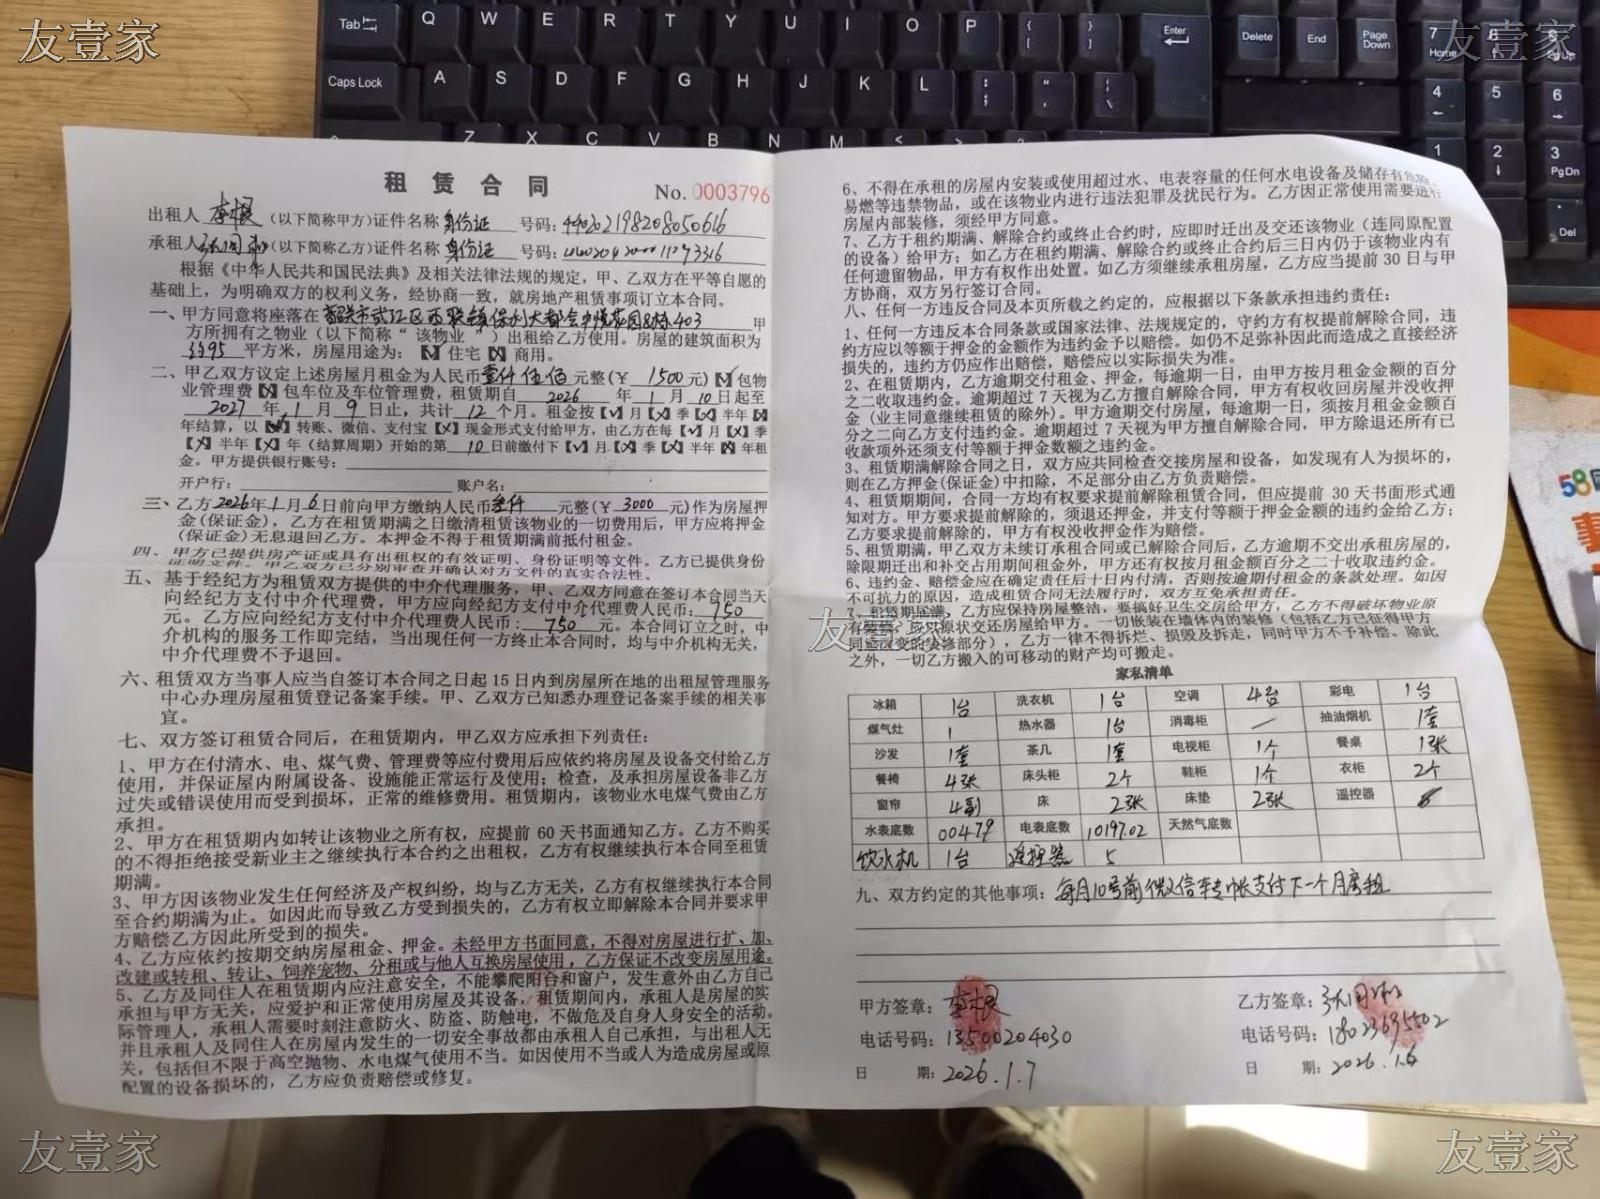 友壹家
友壹家
租 赁 合 同
No. 0003796
出租人 李根 (以下简称甲方)证件名称 身份证 号码: 440202198208050616
承租人 (以下简称乙方)证件名称 身份证 号码:
根据《中华人民共和国民法典》及相关法律法规的规定，甲、乙双方在平等自愿的
基础上，为明确双方的权利义务，经协商一致，就房地产租赁事项订立本合同。
一、甲方同意将座落在 韶关市武江区西联镇保利大都会中悦花园8栋403 甲
方所拥有之物业（以下简称“该物业”）出租给乙方使用。房屋的建筑面积为
约95 平方米，房屋用途为：【√】住宅【×】商用。
二、甲乙双方议定上述房屋月租金为人民币 壹仟伍佰 元整(￥ 1500 元)【√】包物
业管理费【×】包车位及车位管理费，租赁期自 2026 年 1 月 10 日起至
2027 年 1 月 9 日止，共计 12 个月。租金按【√】月【×】季【×】半年【×】
年结算，以【√】转账、微信、支付宝【×】现金形式支付给甲方，由乙方在每【√】月【×】季
【×】半年【×】年（结算周期）开始的第 10 日前缴付下【√】月【×】季【×】半年【×】年租
金。甲方提供银行账号：
开户行： 账户名：
三、乙方 2026年 1 月 6 日前向甲方缴纳人民币 叁仟 元整(￥ 3000 元)作为房屋押
金(保证金)，乙方在租赁期满之日缴清租赁该物业的一切费用后，甲方应将押金
(保证金)无息退回乙方。本押金不得于租赁期满前抵付租金。
四、甲方已提供房产证或具有出租权的有效证明、身份证明等文件。乙方已提供身份
证明文件。甲乙双方已分别审查并确认对方文件的真实合法性。
五、基于经纪方为租赁双方提供的中介代理服务，甲、乙双方同意在签订本合同当天
向经纪方支付中介代理费，甲方应向经纪方支付中介代理费人民币： 750
元。乙方应向经纪方支付中介代理费人民币： 750 元。本合同订立之时，中
介机构的服务工作即完结，当出现任何一方终止本合同时，均与中介机构无关，
中介代理费不予退回。
六、租赁双方当事人应当自签订本合同之日起 15 日内到房屋所在地的出租屋管理服务
中心办理房屋租赁登记备案手续。甲、乙双方已知悉办理登记备案手续的相关事
宜。
七、双方签订租赁合同后，在租赁期内，甲乙双方应承担下列责任：
1、甲方在付清水、电、煤气费、管理费等应付费用后应依约将房屋及设备交付给乙方
使用，并保证屋内附属设备、设施能正常运行及使用；检查，及承担房屋设备非乙方
过失或错误使用而受到损坏，正常的维修费用。租赁期内，该物业水电煤气费由乙方
承担。
2、甲方在租赁期内如转让该物业之所有权，应提前 60 天书面通知乙方。乙方不购买
的不得拒绝接受新业主之继续执行本合约之出租权，乙方有权继续执行本合同至租赁
期满。
3、甲方因该物业发生任何经济及产权纠纷，均与乙方无关，乙方有权继续执行本合同
至合约期满为止。如因此而导致乙方受到损失的，乙方有权立即解除本合同并要求甲
方赔偿乙方因此所受到的损失。
4、乙方应依约按期交纳房屋租金、押金。未经甲方书面同意，不得对房屋进行扩、加、
改建或转租、转让、饲养宠物、分租或与他人互换房屋使用，乙方保证不改变房屋用途。
5、乙方及同住人在租赁期内应注意安全，不能攀爬阳台和窗户，发生意外由乙方自己
承担与甲方无关，应爱护和正常使用房屋及其设备，租赁期间内，承租人是房屋的实
际管理人，承租人需要时刻注意防火、防盗、防触电，不做危及自身人身安全的活动。
并且承租人及同住人在房屋内发生的一切安全事故都由承租人自己承担，与出租人无
关，包括但不限于高空抛物、水电煤气使用不当。如因使用不当或人为造成房屋或原
配置的设备损坏的，乙方应负责赔偿或修复。
6、不得在承租的房屋内安装或使用超过水、电表容量的任何水电设备及储存有危险、
易燃等违禁物品，或在该物业内进行违法犯罪及扰民行为。乙方因正常使用需要进行
房屋内部装修，须经甲方同意。
7、乙方于租约期满、解除合约或终止合约时，应即时迁出及交还该物业（连同原配置
的设备）给甲方；如乙方在租约期满、解除合约或终止合约后三日内仍于该物业内有
任何遗留物品，甲方有权作出处置。如乙方须继续承租房屋，乙方应当提前 30 日与甲
方协商，双方另行签订合同。
八、任何一方违反本合同及本页所载之约定的，应根据以下条款承担违约责任：
1、任何一方违反本合同条款或国家法律、法规规定的，守约方有权提前解除合同，违
约方应以等额于押金的金额作为违约金予以赔偿。如仍不足弥补因此而造成之直接经济
损失的，违约方仍应作出赔偿，赔偿应以实际损失为准。
2、在租赁期内，乙方逾期交付租金、押金，每逾期一日，由甲方按月租金金额的百分
之二收取违约金。逾期超过 7 天视为乙方擅自解除合同，甲方有权收回房屋并没收押
金(业主同意继续租赁的除外)。甲方逾期交付房屋，每逾期一日，须按月租金金额百
分之二向乙方支付违约金。逾期超过 7 天视为甲方擅自解除合同，甲方除退还所有已
收款项外还须支付等额于押金数额之违约金。
3、租赁期满解除合同之日，双方应共同检查交接房屋和设备，如发现有人为损坏的，
则在乙方押金(保证金)中扣除，不足部分由乙方负责赔偿。
4、租赁期期间，合同一方均有权要求提前解除租赁合同，但应提前 30 天书面形式通
知对方。甲方要求提前解除的，须退还押金，并支付等额于押金金额的违约金给乙方；
乙方要求提前解除的，甲方有权没收押金作为赔偿。
5、租赁期满，甲乙双方未续订承租合同或已解除合同后，乙方逾期不交出承租房屋的，
除限期迁出和补交占用期间租金外，甲方还有权按月租金额百分之二十收取违约金。
6、违约金、赔偿金应在确定责任后十日内付清，否则按逾期付租金的条款处理。如因
不可抗力的原因，造成租赁合同无法履行时，双方互免承担责任。
7、租赁期届满，乙方应保持房屋整洁，要搞好卫生交房给甲方，乙方不得破坏物业原
有装修，应以原状交还房屋给甲方。一切嵌装在墙体内的装修（包括乙方已征得甲方
同意改变的装修部分），乙方一律不得拆烂、损毁及拆走，同时甲方不予补偿。除此
之外，一切乙方搬入的可移动的财产均可搬走。
友壹家
家私清单
冰箱 1台 洗衣机 1台 空调 4台 彩电 1台
煤气灶 1 热水器 1台 消毒柜 — 抽油烟机 1套
沙发 1套 茶几 1套 电视柜 1个 餐桌 1张
餐椅 4张 床头柜 2个 鞋柜 1个 衣柜 2个
窗帘 4副 床 2张 床垫 2张 遥控器
水表底数 00479 电表底数 10197.02 天然气底数
饮水机 1台 遥控器 5
九、双方约定的其他事项： 每月10号前微信转帐支付下一个月房租
甲方签章： 李根
电话号码：13500204030
日 期：2026.1.7
乙方签章：
电话号码：18023695502
日 期：2026.1.6
Tab
Q W E R T Y U I O P { [ } ]
Enter
Delete End Page Down
7 Home 8 9 PgUp
Caps Lock
A S D F G H J K L
4 5 6
Z X C V B N M < >
1 2 3 PgDn
Del
58
友壹家
友壹家